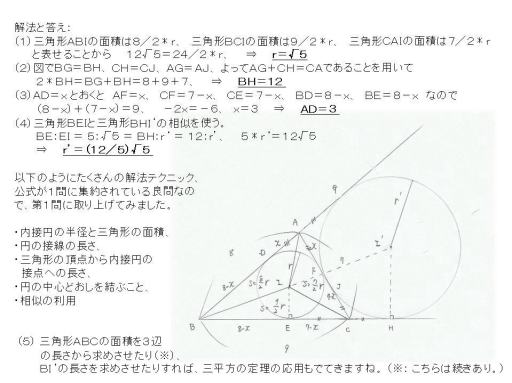 解法と答え:
(1) 三角形ABIの面積は8/2*r、 三角形BCIの面積は9/2*r、 三角形CAIの面積は7/2*r
と表せることから 12√5=24/2*r ⇒ r=√5
(2) 図でBG=BH、CH=CJ、AG=AJ、よってAG+CH=CAであることを用いて
2*BH=BG+BH=8+9+7、 ⇒ BH=12
(3) AD=xとおくと AF=x、 CF=7-x、 CE=7-x、 BD=8-x、 BE=8-x なので
(8-x)+(7-x)=9、 -2x=-6、 x=3 ⇒ AD=3
(4) 三角形BEIと三角形BHI'の相似を使う。
BE:EI = 5:√5 = BH:r' = 12:r'、 5*r'=12√5
⇒ r'=(12/5)√5
以下のようにたくさんの解法テクニック、
公式が1問に集約されている良問なの
で、第1問に取り上げてみました。
・内接円の半径と三角形の面積、
・円の接線の長さ、
・三角形の頂点から内接円の
接点への長さ、
・円の中心どおしを結ぶこと、
・相似の利用
G
r'
A
8
D
x
x
7
I'
r
F
8-x
I
J
B
8-x
E
7-x
C
H
9
(5) 三角形ABCの面積を3辺
の長さから求めさせたり(※)、
BI'の長さを求めさせたりすれば、三平方の定理の応用もでてきますね。(※: こちらは続きあり。)